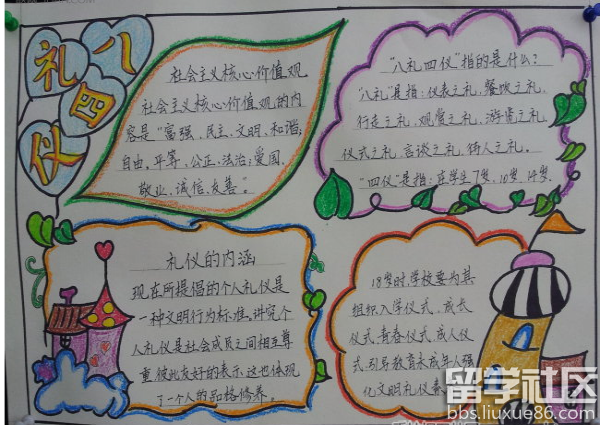 八礼四仪
社会主义核心价值观
社会主义核心价值观的内
容是“富强、民主、文明、和谐;
自由、平等、公正、法治;爱国、
敬业、诚信、友善”。
“八礼四仪”指的是什么?
“八礼”是指:仪表之礼、餐饮之礼、
行走之礼、观赏之礼、游览之礼、
仪式之礼、言谈之礼、待人之礼。
“四仪”是指:在学生7岁、10岁、14岁、
礼仪的内涵
现在所提倡的个人礼仪是
一种文明行为标准。讲究个
人礼仪是社会成员之间相互尊
重,彼此友好的表示,这也体现
了一个人的品格修养。
18岁时,学校要为其
组织入学仪式、成长
仪式、青春仪式、成人仪
式,引导教育未成年人强
化文明礼仪素
留学社区
bbs.liuxue86.com